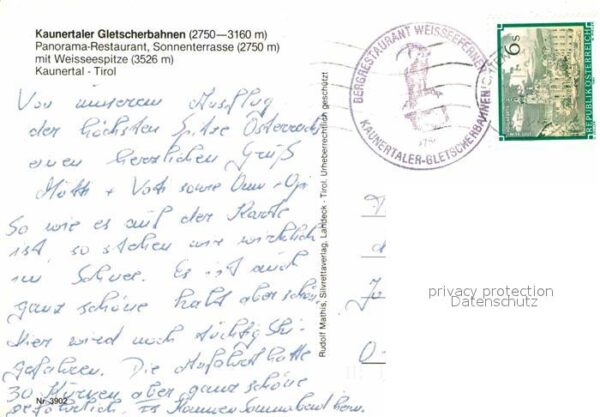 Kaunertaler Gletscherbahnen (2750—3160 m)
Panorama-Restaurant, Sonnenterrasse (2750 m)
mit Weisseespitze (3526 m)
Kaunertal - Tirol
Von unserem Ausflug
der höchsten Spitze Österreichs
einen herzlichen Gruß
Mutti + Vati sowie Oma - Opi
So wie es auf der Karte
ist, so stehen wir wirklich
im Schnee. Es ist auch
ganz schöne kalt aber schön.
Hier wird noch tüchtig Ski
gefahren. Die Anfahrt hatte
30 Kurven aber ganz schöne
gefährlich. Sonnabend
Nr. 3902
Rudolf Mathis, Silvrettaverlag, Landeck - Tirol. Urheberrechtlich geschützt
BERGRESTAURANT WEISSEEFERNER
KAUNERTALER-GLETSCHERBAHNEN
6 S
REPUBLIK ÖSTERREICH
privacy protection
Datenschutz